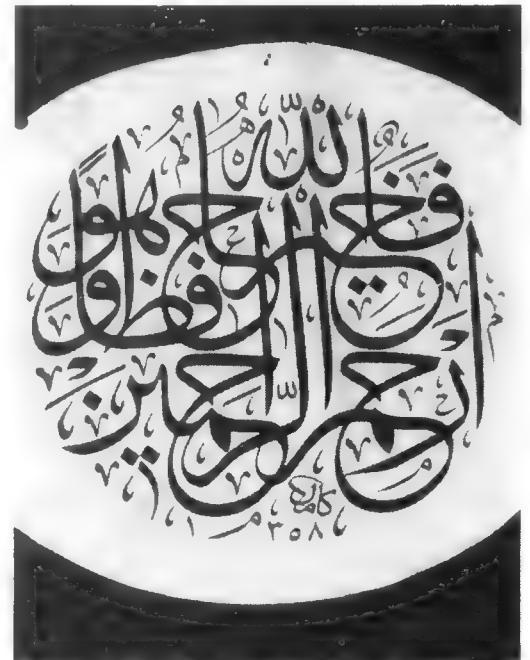 فالله خير حافظا وهو
ارحم الراحمين
كامل
١٣٥٨